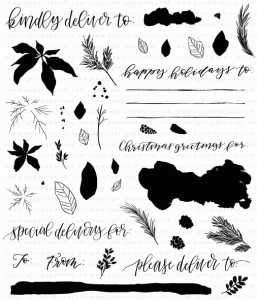 kindly deliver to:
happy holidays to:
Christmas greetings for:
special delivery for:
To: From:
please deliver to: